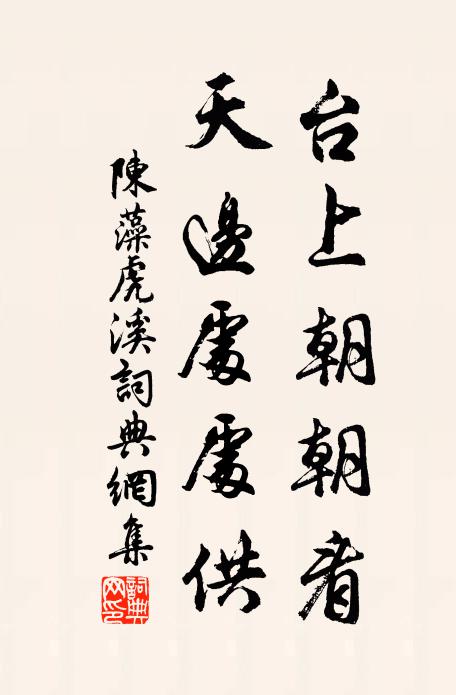 台上朝朝看
天邊處處供
陳藻虎溪詞典網集
詞典網印